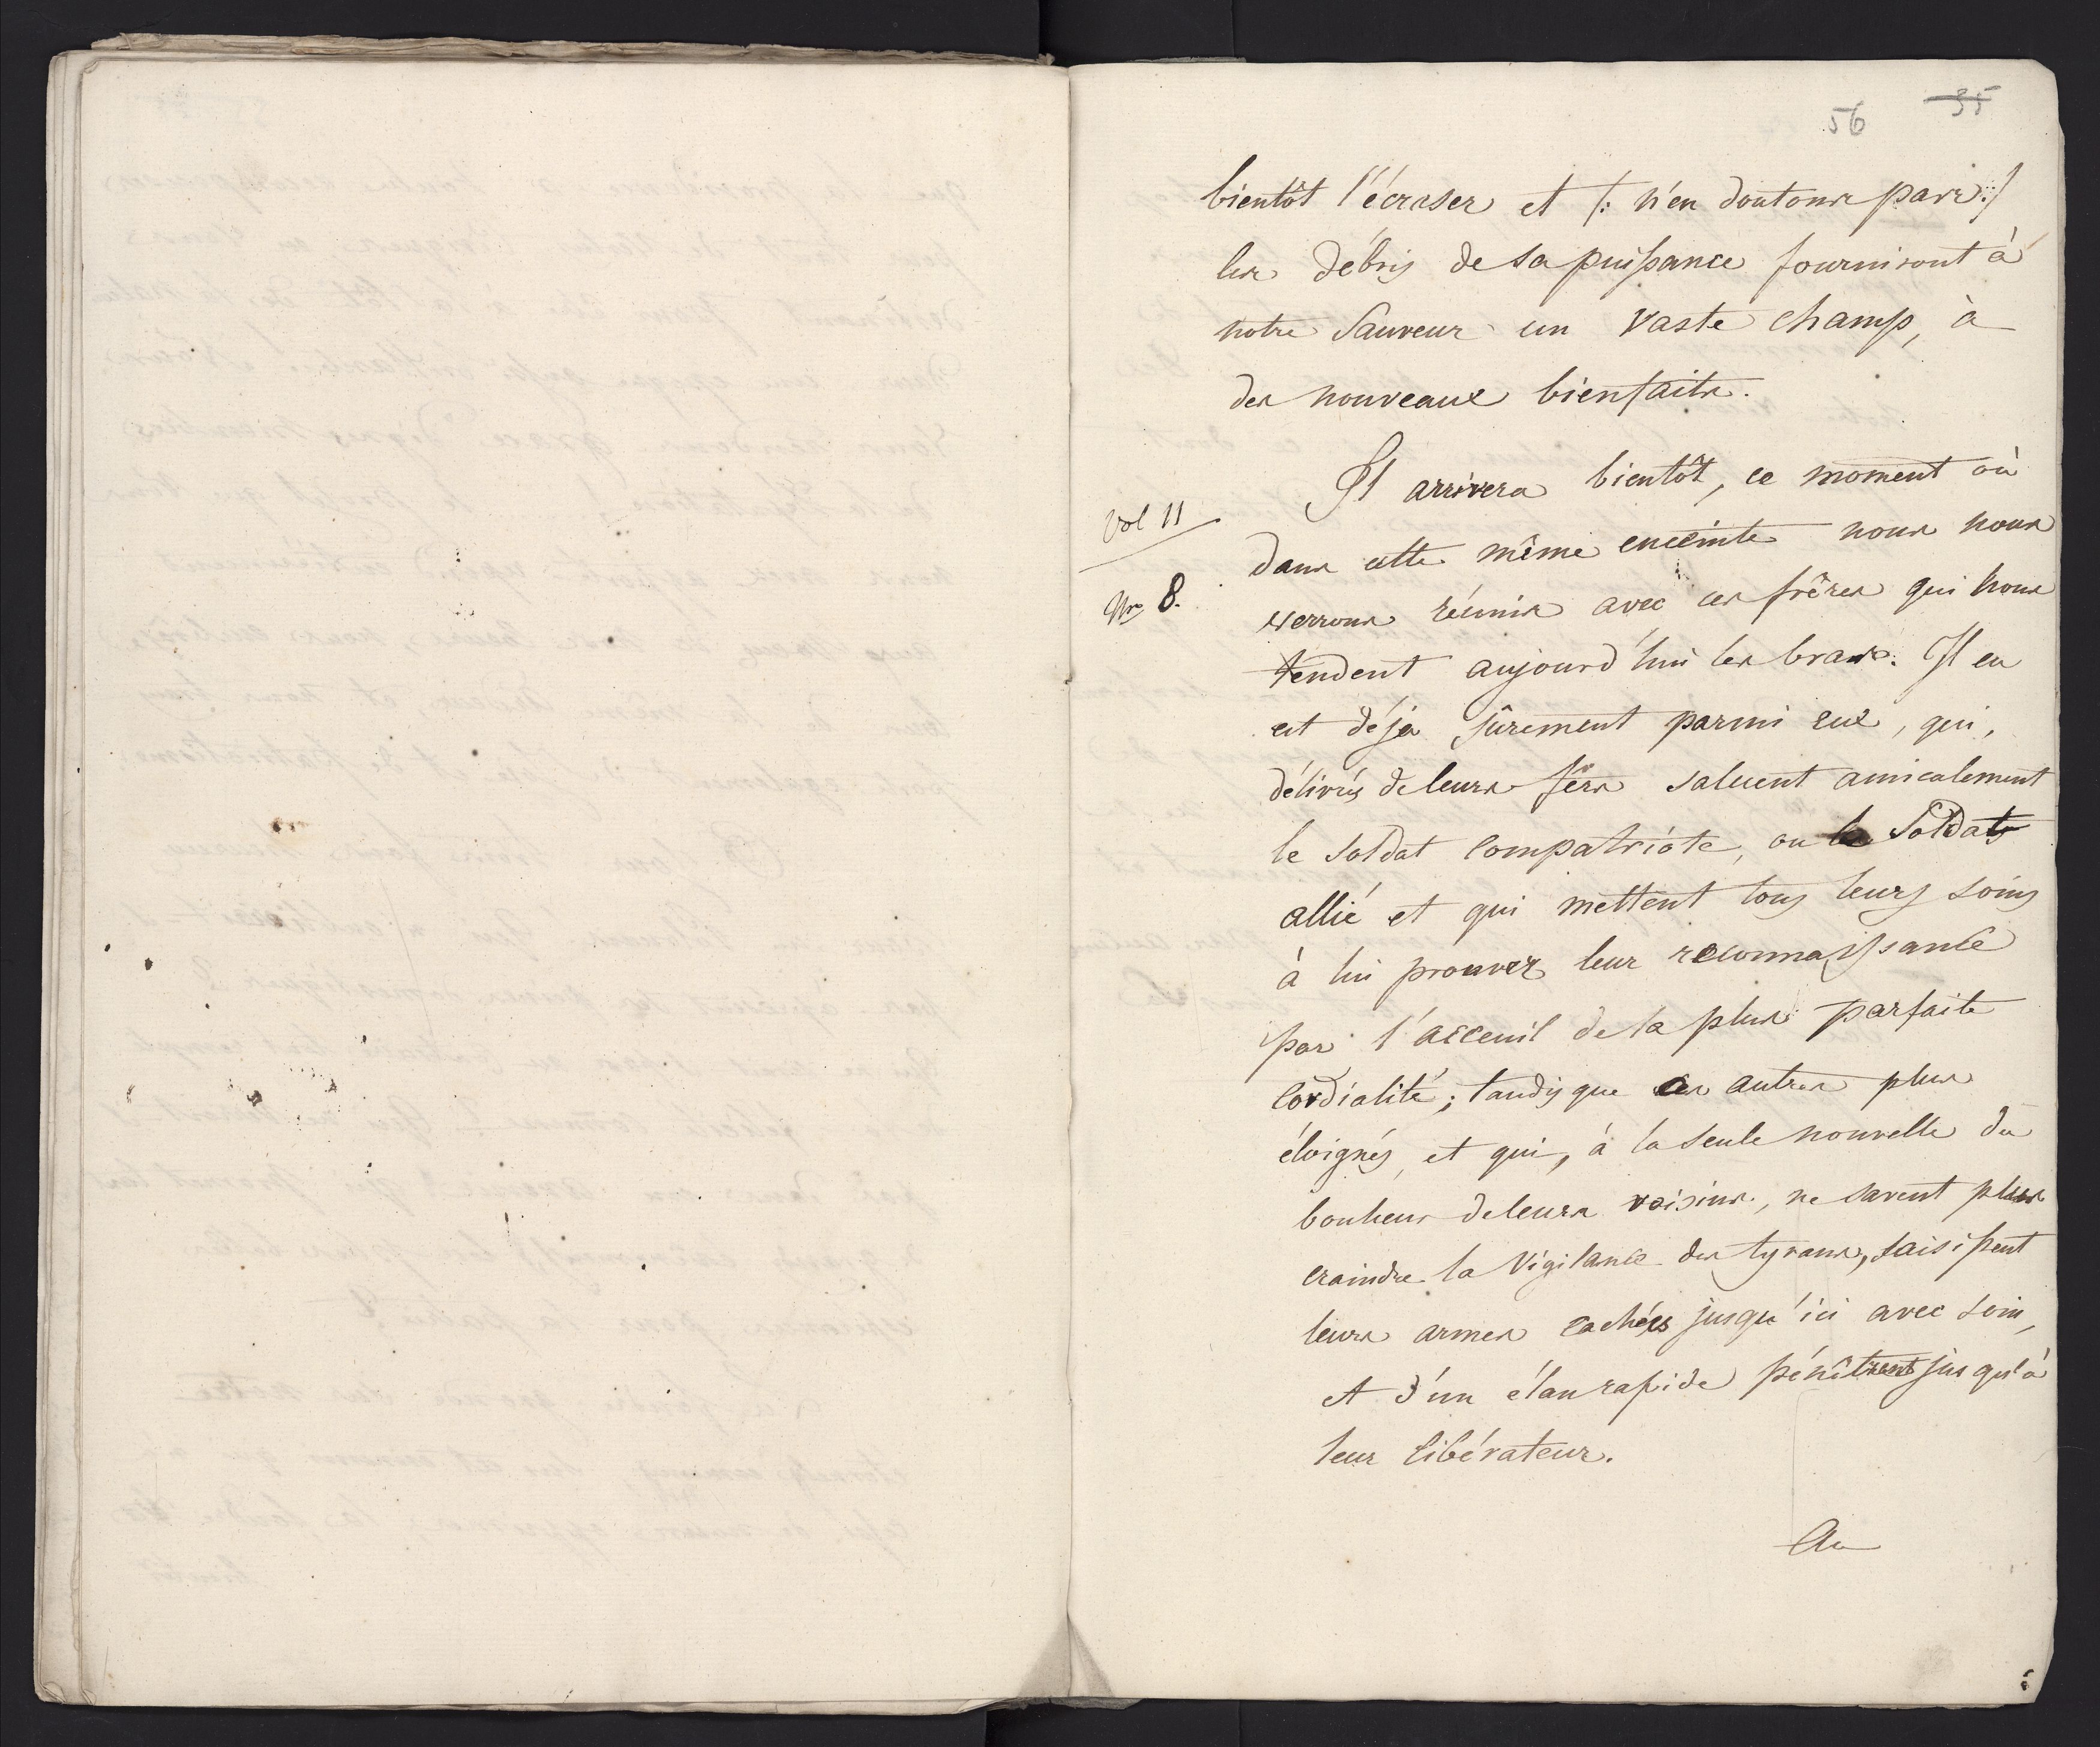 56 35
bientôt l'écraser et /: n'en doutons pas :/
les débris de sa puissance fourniront à
notre Sauveur un vaste champ, à
des nouveaux bienfaits.
Il arrivera bientôt, ce moment où
Vol 11
dans cette même enceinte nous nous
Nro 8.
verrons réunis avec ces frères qui nous
tendent aujourd'hui les bras. Il en
est déja sûrement parmi eux, qui,
délivrés de leurs fers saluent amicalement
le soldat compatriote, ou le Soldat
allié et qui mettent tous leurs soins
à lui prouver leur reconnaissance
par l'acceuil de la plus parfaite
cordialité; tandis que les autres plus
éloignés, et qui, à la seule nouvelle du
bonheur de leurs voisins, ne savent plus
craindre la vigilance des tyrans, saisissent
leurs armes cachées jusqu'ici avec soin,
et d'un élan rapide pénêtrent jusqu'à
leur libérateur.
Au